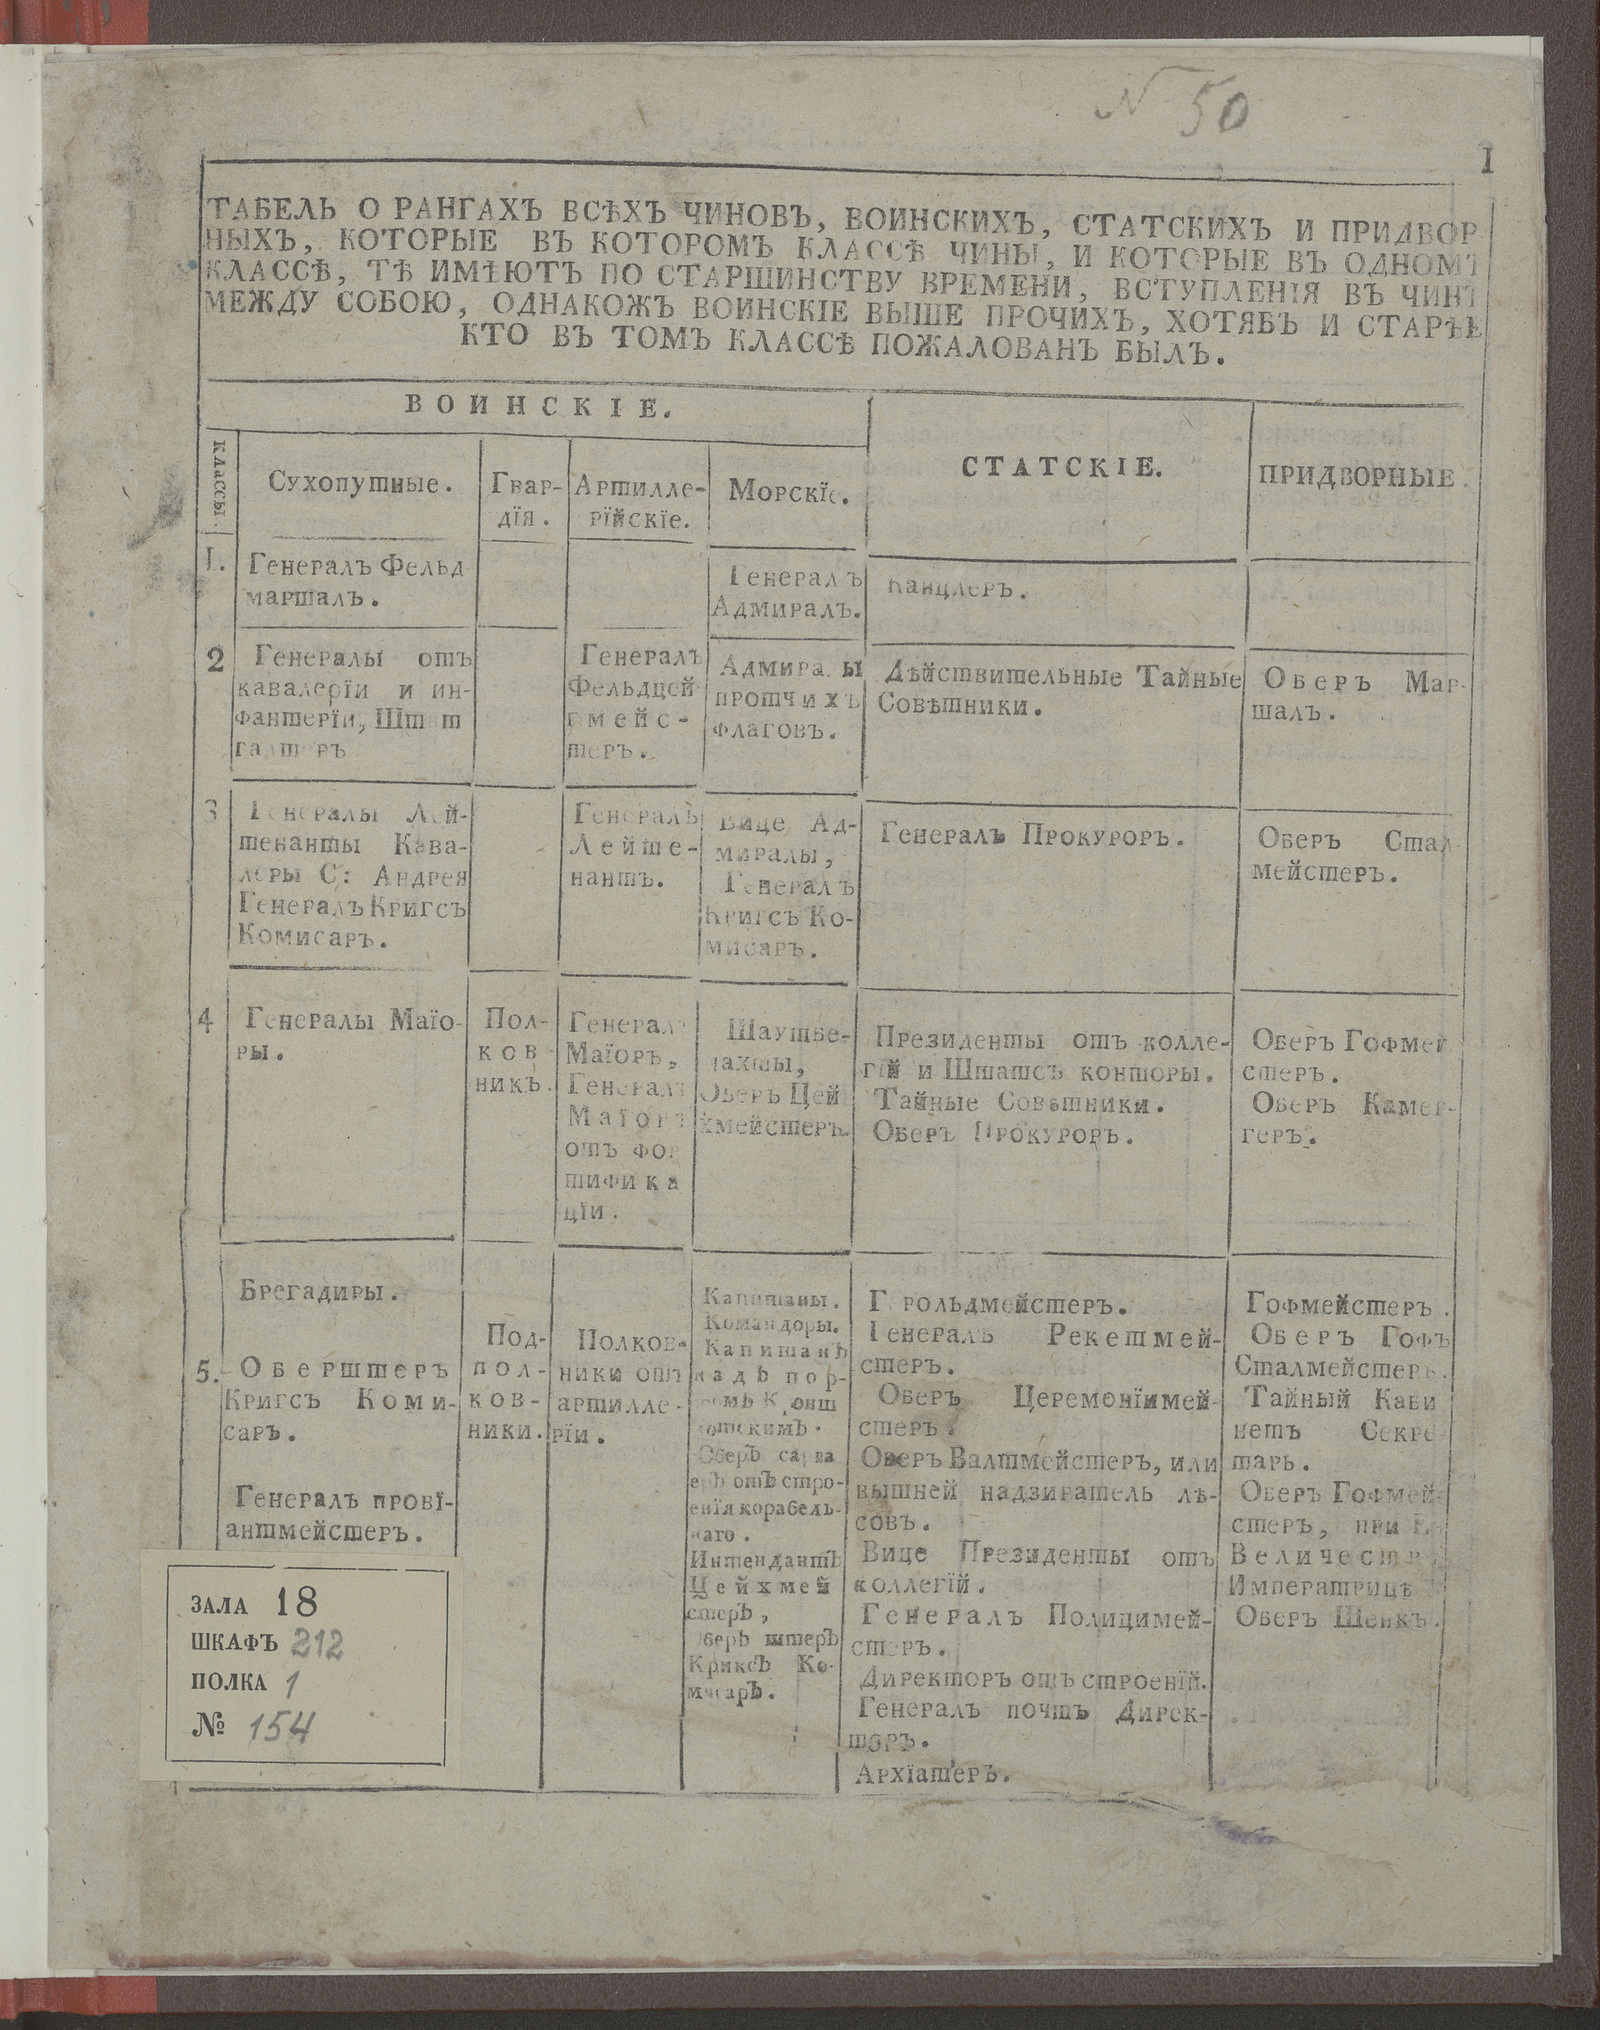 N 50
1
ТАБЕЛЬ О РАНГАХЪ ВСѢХЪ ЧИНОВЪ, ВОИНСКИХЪ, СТАТСКИХЪ И ПРИДВОР
НЫХЪ, КОТОРЫЕ ВЪ КОТОРОМЪ КЛАССѢ ЧИНЫ, И КОТОРЫЕ ВЪ ОДНОМЪ
КЛАССѢ, ТѢ ИМѢЮТЪ ПО СТАРШИНСТВУ ВРЕМЕНИ, ВСТУПЛЕНІЯ ВЪ ЧИНЪ
МЕЖДУ СОБОЮ, ОДНАКОЖЪ ВОИНСКІЕ ВЫШЕ ПРОЧИХЪ, ХОТЯБЪ И СТАРѢЕ
КТО ВЪ ТОМЪ КЛАССѢ ПОЖАЛОВАНЪ БЫЛЪ.
ВОИНСКІЕ.
СТАТСКІЕ.
ПРИДВОРНЫЕ.
КЛАССЫ.
Сухопутные.
Гвар-
дїя.
Артилле-
рїйскїе.
Морскїе.
1.
Генералъ Фельд
маршалъ.
Генералъ
Адмиралъ.
Канцлеръ.
2
Генералы отъ
кавалерїи и ин-
фантерїи, Штат
галтеръ
Генералъ
Фельдцей
гмейс-
теръ.
Адмиралы
протчихъ
флаговъ.
Дѣйствительные Тайные
Совѣтники.
Оберъ Мар-
шалъ.
3
Генералы Лей-
тенанты Кава-
леры С: Андрея
Генералъ Кригсъ
Комисаръ.
Генералъ
Лейте-
нантъ.
Вице Ад-
миралы,
Генералъ
Кригсъ Ко-
мисаръ.
Генералъ Прокуроръ.
Оберъ Стал-
мейстеръ.
4
Генералы Маїо-
ры.
Пол-
ков-
никъ.
Генералъ
Маїоръ,
Генералъ
Маїоръ
отъ фор
тифика
цїи.
Шаутбе-
нахты,
Оберъ Цей
хмейстеръ.
Президенты отъ колле-
гїй и Штатсъ конторы.
Тайные Совѣтники.
Оберъ Прокуроръ.
Оберъ Гофмей
стеръ.
Оберъ Камер-
геръ.
5.
Брегадиры.
Оберштеръ
Кригсъ Коми-
саръ.
Генералъ провї-
антмейстеръ.
Под-
пол-
ков-
ники.
Полков-
ники отъ
артилле-
рїи.
Капитаны.
Командоры.
Капитанъ
надъ пор-
томъ Кронш
отскимъ.
Оберъ сарва
еръ отъ стро-
енїя корабель-
наго.
Интендантъ
Цейхмей
стеръ,
Оберъ штеръ
Криксъ Ко-
мисаръ.
Герольдмейстеръ.
Генералъ Рекетмей-
стеръ.
Оберъ Церемонїимей-
стеръ.
Оберъ Валтмейстеръ, или
вышней надзиратель лѣ-
совъ.
Вице Президенты отъ
коллегїй.
Генералъ Полицимей-
стеръ.
Директоръ отъ строенїй.
Генералъ почтъ Дирек-
торъ.
Архїатеръ.
Гофмейстеръ.
Оберъ Гофъ
Сталмейстеръ.
Тайный Каби
нетъ Секре-
тарь.
Оберъ Гофмей-
стеръ, при
Величествѣ
Императрицѣ
Оберъ Шенкъ.
ЗАЛА 18
ШКАФЪ 212
ПОЛКА 1
№ 154